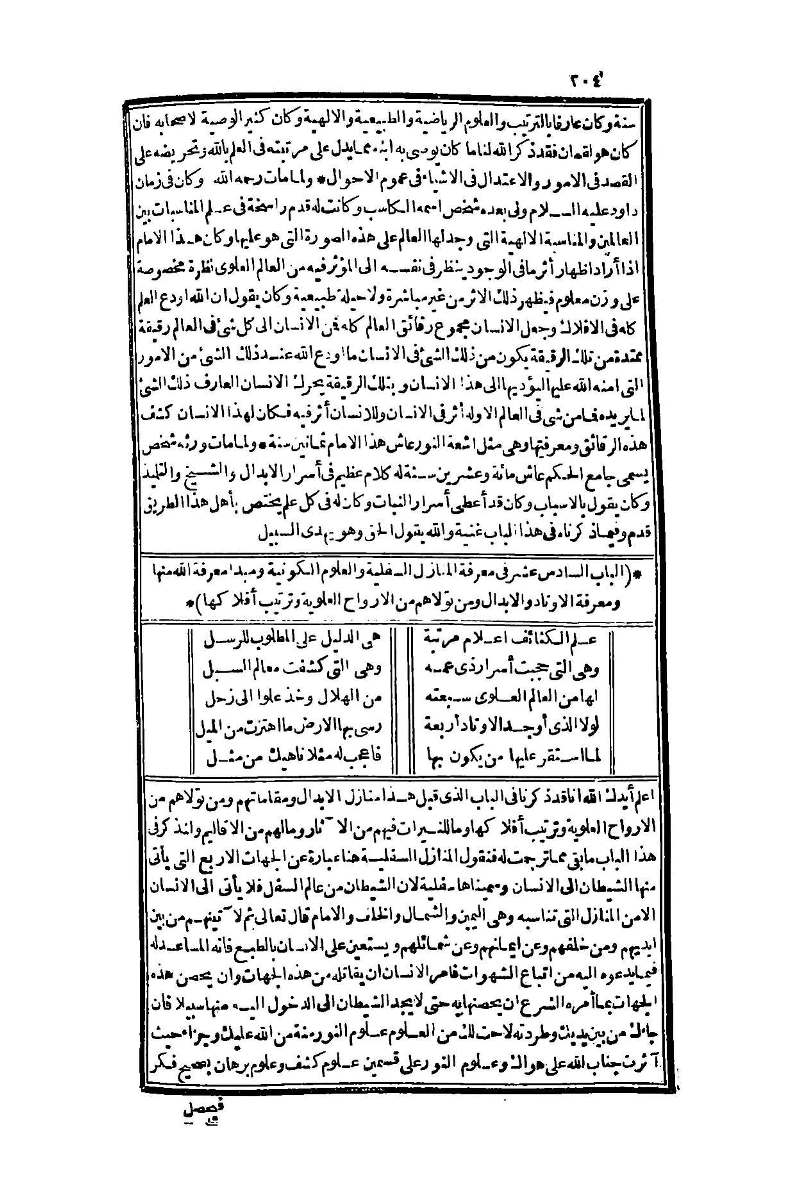 ٢٠٤
سنة وكان عارفا بالترتيب والعلوم الرياضية والطبيعية والالهية وكان كثير الوصية لاصحابه فان
كان هو لقمان فقد ذكر الله لنا ما كان يوصى به ابنه مما يدل على مرتبته فى العلم بالله وتحريضه على
القصد فى الامور والاعتدال فى الاشياء فى عموم الاحوال * ولما مات رحمه الله وكان فى زمان
داود عليه السلام ولى بعده شخص اسمه الكاسب وكانت له قدم راسخة فى علم المناسبات بين
العالمين والمناسبة الالهية التى وجد لها العالم على هذه الصورة التى هو عليها وكان هذا الامام
اذا أراد اظهار أثر ما فى الوجود ينظر فى نفسه الى المؤثر فيه من العالم العلوى نظرة مخصوصة
على وزن معلوم فيظهر ذلك الاثر من غير مباشرة ولا حيلة طبيعية وكان يقول ان الله اودع العلم
كله فى الافلاك وجعل الانسان مجموع رقائق العالم كله فمن الانسان الى كل شئ فى العالم رقيقة
ممتدة من تلك الرقيقة يكون من ذلك الشئ فى الانسان ما اودع الله عند ذلك الشئ من الامور
التى امنه الله عليها ليؤديها الى هذا الانسان وبتلك الرقيقة يحرك الانسان العارف ذلك الشئ
لما يريده فما من شئ فى العالم الا وله أثر فى الانسان وللانسان أثر فيه فكان لهذا الانسان كشف
هذه الرقائق ومعرفتها وهى مثل اشعة النور عاش هذا الامام ثمانين سنة * ولما مات ورثه شخص
يسمى جامع الحكم عاش مائة وعشرين سنة له كلام عظيم فى أسرار الابدال والشيخ والتليذ
وكان يقول بالاسباب وكان قد أعطى أسرار النبات وكان له فى كل علم يختص بأهل هذا الطريق
قدم وفيما ذكرناه فى هذا الباب غنية والله يقول الحق وهو يهدى السبيل
*(الباب السادس عشر فى معرفة المنازل السفلية والعلوم الكونية ومبدا معرفة الله منها
ومعرفة الاوتاد والابدال ومن تولاهم من الارواح العلوية وترتيب أفلاكها)*
علم الكثائف اعلام مرتبة هى الدليل على المطلوب للرسل
وهى التى حجبت أسرار ذى عمه وهى التى كشفت معالم السبل
لها من العالم العلوى سبعته من الهلال وخذ علوا الى زحل
لولا الذى أوجد الاوتاد أربعة رسى بها الارض ما اهتزت من الميل
لما استقر عليها من يكون بها فاعجب له مثلا ناهيك من مثل
اعلم أيدك الله انا قد ذكرنا فى الباب الذى قبل هذا منازل الابدال ومقاماتهم ومن تولاهم من
الارواح العلوية وترتيب أفلاكها وما للنيرات فيهم من الآثار وما لهم من الاقاليم ولنذكر فى
هذا الباب ما بقى مما ترجمت له فنقول المنازل السفلية هنا عبارة عن الجهات الاربع التى يأتى
منها الشيطان الى الانسان وسميناها سفلية لان الشيطان من عالم السفل فلا يأتى الى الانسان
الا من المنازل التى تناسبه وهى اليمين والشمال والخلف والامام قال تعالى ثم لآتينهم من بين
ايديهم ومن خلفهم وعن ايمانهم وعن شمائلهم ويستعين على الانسان بالطبع فانه المساعد له
فيما يدعوه اليه من اتباع الشهوات فامر الانسان ان يقاتله من هذه الجهات وان يحصن هذه
الجهات بما أمره الشرع ان يحصنها به حتى لا يجد الشيطان الى الدخول اليه منها سبيلا فان
جاءك من بين يديك وطردته لاحت لك من العلوم علوم النور منة من الله عليك وجزاء حيث
آثرت جناب الله على هواك وعلوم النور على قسمين علوم كشف وعلوم برهان بصحيح فكر
فيحصل